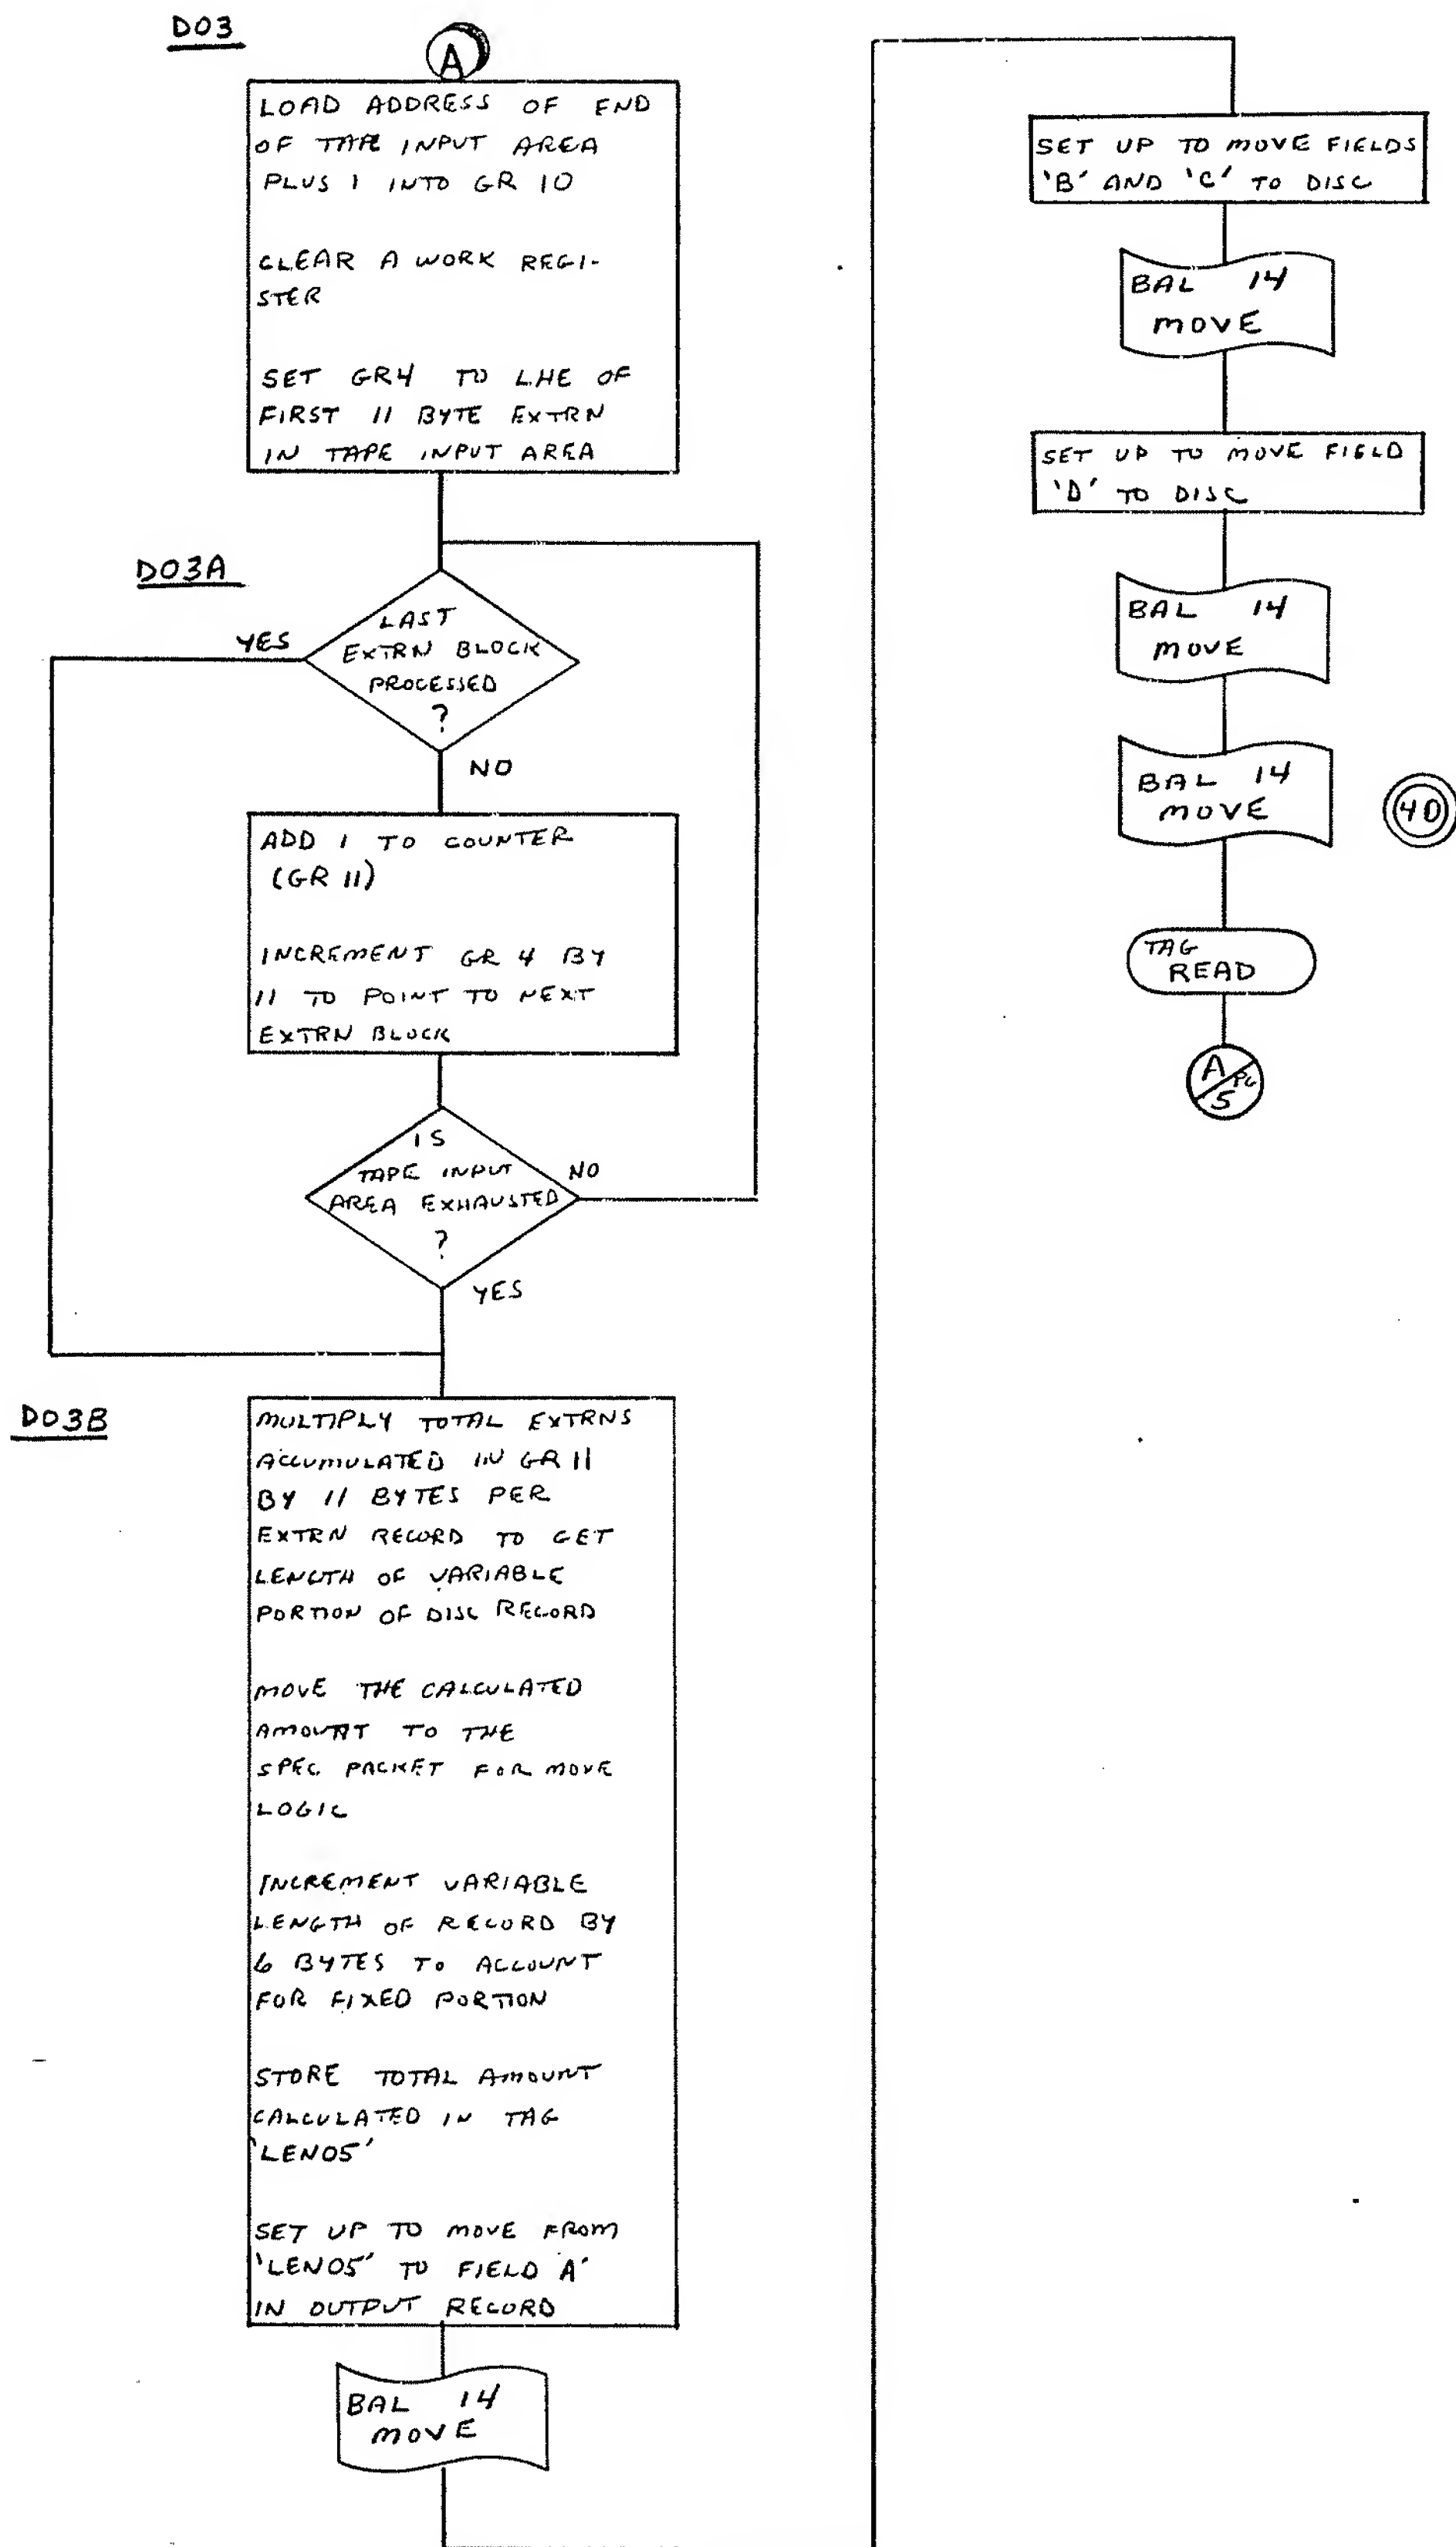 D03
A
LOAD ADDRESS OF END
OF TAPE INPUT AREA
PLUS 1 INTO GR 10
CLEAR A WORK REGI-
STER
SET GR4 TO LHE OF
FIRST 11 BYTE EXTRN
IN TAPE INPUT AREA
D03A
LAST
EXTRN BLOCK
PROCESSED
?
YES
NO
ADD 1 TO COUNTER
(GR 11)
INCREMENT GR 4 BY
11 TO POINT TO NEXT
EXTRN BLOCK
IS
TAPE INPUT
AREA EXHAUSTED
?
NO
YES
D03B
MULTIPLY TOTAL EXTRNS
ACCUMULATED IN GR 11
BY 11 BYTES PER
EXTRN RECORD TO GET
LENGTH OF VARIABLE
PORTION OF DISC RECORD
MOVE THE CALCULATED
AMOUNT TO THE
SPEC PACKET FOR MOVE
LOGIC
INCREMENT VARIABLE
LENGTH OF RECORD BY
6 BYTES TO ACCOUNT
FOR FIXED PORTION
STORE TOTAL AMOUNT
CALCULATED IN TAG
'LEN05'
SET UP TO MOVE FROM
'LEN05' TO FIELD 'A'
IN OUTPUT RECORD
BAL 14
MOVE
SET UP TO MOVE FIELDS
'B' AND 'C' TO DISC
BAL 14
MOVE
SET UP TO MOVE FIELD
'D' TO DISC
BAL 14
MOVE
BAL 14
MOVE
40
TAG
READ
A PG
5